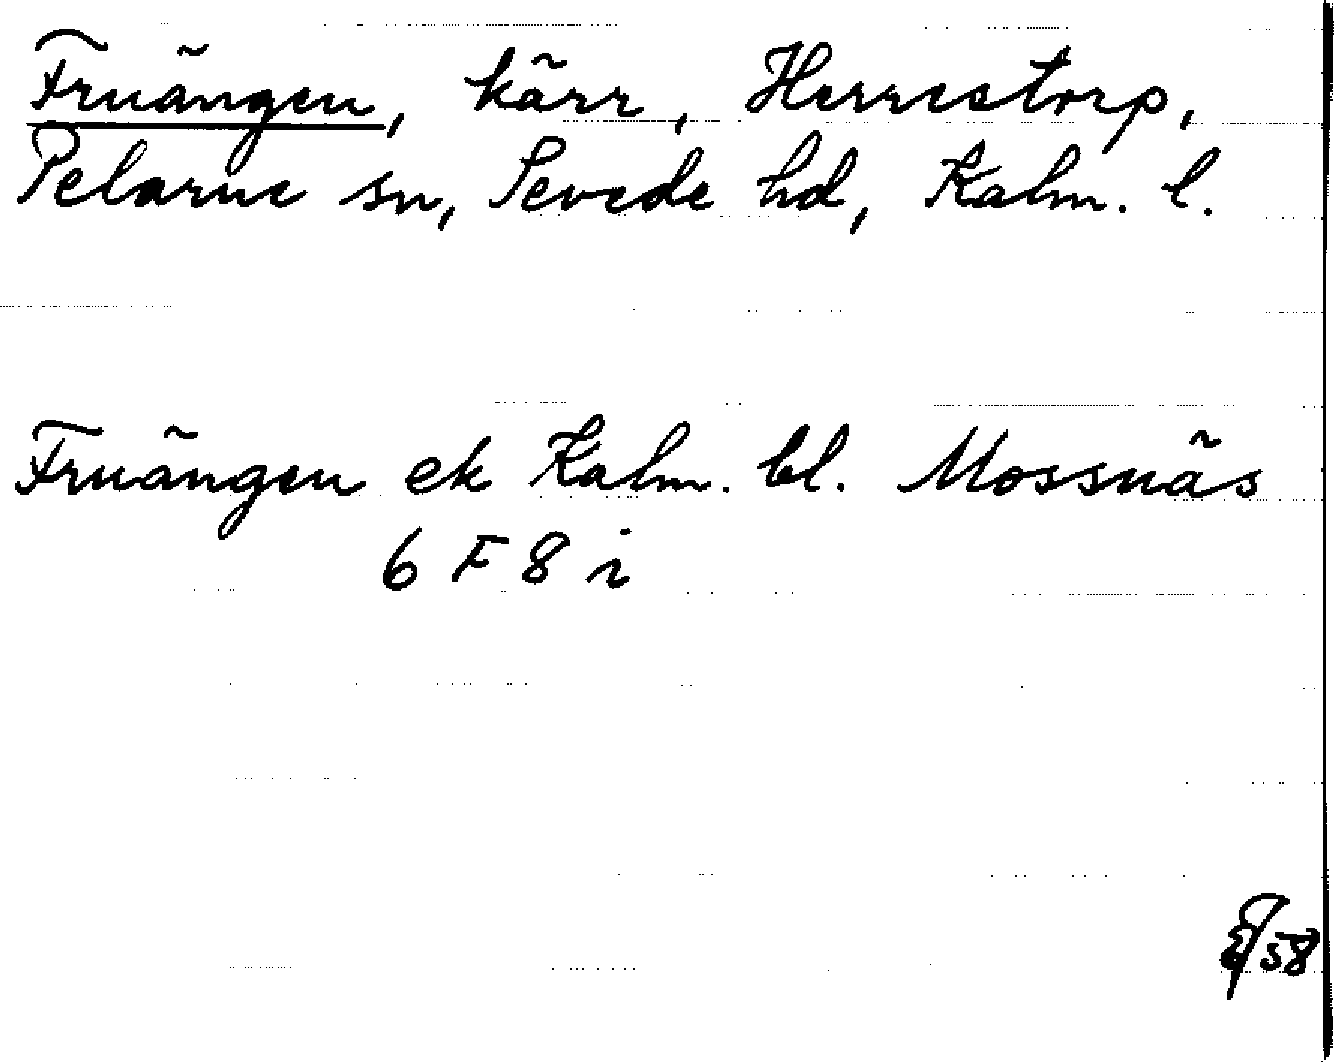 Fruängen, kärr, Herrestorp,
Pelarne sn, Sevede hd, Kalm. l.
Fruängen ek Kalm. bl. Mossnäs
6 F 8 i
58